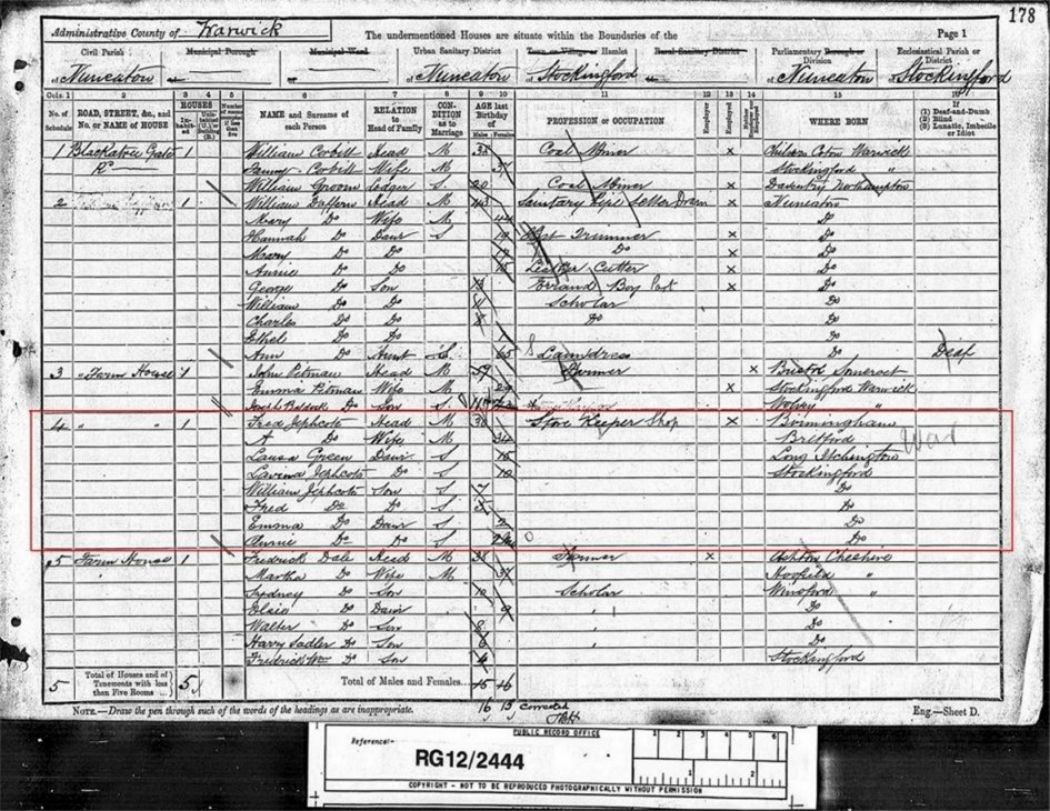 178
Administrative County of Warwick The undermentioned Houses are situate within the Boundaries of the Page 1
Civil Parish Municipal Borough Municipal Ward Urban Sanitary District Town or Village or Hamlet Rural Sanitary District Parliamentary Borough or Division Ecclesiastical Parish or District
of Nuneaton of of Nuneaton of Stockingford of of Nuneaton of Stockingford
Cols. 1 2 3 4 5 6 7 8 9 10 11 12 13 14 15 16
No. of Schedule ROAD, STREET, &c., and No. or NAME of HOUSE HOUSES Inhabited NAME and Surname of each Person RELATION to Head of Family CONDITION as to Marriage AGE last Birthday of Males Females PROFESSION or OCCUPATION Employer Employed WHERE BORN If (1) Deaf-and-Dumb (2) Blind (3) Lunatic, Imbecile or Idiot
1 Blackatree Gate 1 William Corbitt Head M 32 Coal Miner x Coton Warwick
Corbitt Wife M 37 Stockingford "
William Groom Lodger S 20 Coal Miner x Daventry Northampton
2 1 William Daffern Head M 43 Sanitary Pipe x Nuneaton
Mary Do Wife M 44 Do
Hannah Do Daur S 19 Trimmer x Do
Mary Do Do Do x Do
Annie Do Do 15 Leather Cutter x Do
George Do Son 13 Errand Boy x Do
William Do Do 11 Scholar Do
Charles Do Do 8 Do Do
Ethel Do Do 7 Do
Ann Do Aunt 65 Laundress Do Deaf
3 " Farm House 1 John Pitman Head M 59 Farmer x Bristol Somerset
Emma Pitman Wife M 29 Stockingford Warwick
Joseph Do Son S Wolvey "
4 " " 1 Fred Jephcote Head M 36 Store Keeper Shop x Birmingham
A Do Wife M 34 Bretford War
Laura Green Daur S 15 Long Itchington
Lavina Jephcote Do S 10 Stockingford
William Jephcote Son S 7 Do
Fred Do Do S 5 Do
Emma Do Daur S 2 Do
Annie Do Do S Do
5 Farm House 1 Fredrick Dale Head M 38 Farmer x Ashton Cheshire
" Martha Do Wife M 37 "
Sydney Do Son 10 Scholar Winsford "
Elsie Do Daur 9 " Do
Walter Do Son 8 " Do
Harry Sadler Do Son 6 " Do
Fredrick Wm Do Son 4 Stockingford
5 Total of Houses and of Tenements with less than Five Rooms 5 Total of Males and Females 15 16
16 15 corrected
NOTE.—Draw the pen through such of the words of the headings as are inappropriate. Eng.—Sheet D.
PUBLIC RECORD OFFICE
Reference:-
RG12/2444
1 2 3 4 5 6
1 2
COPYRIGHT - NOT TO BE REPRODUCED PHOTOGRAPHICALLY WITHOUT PERMISSION